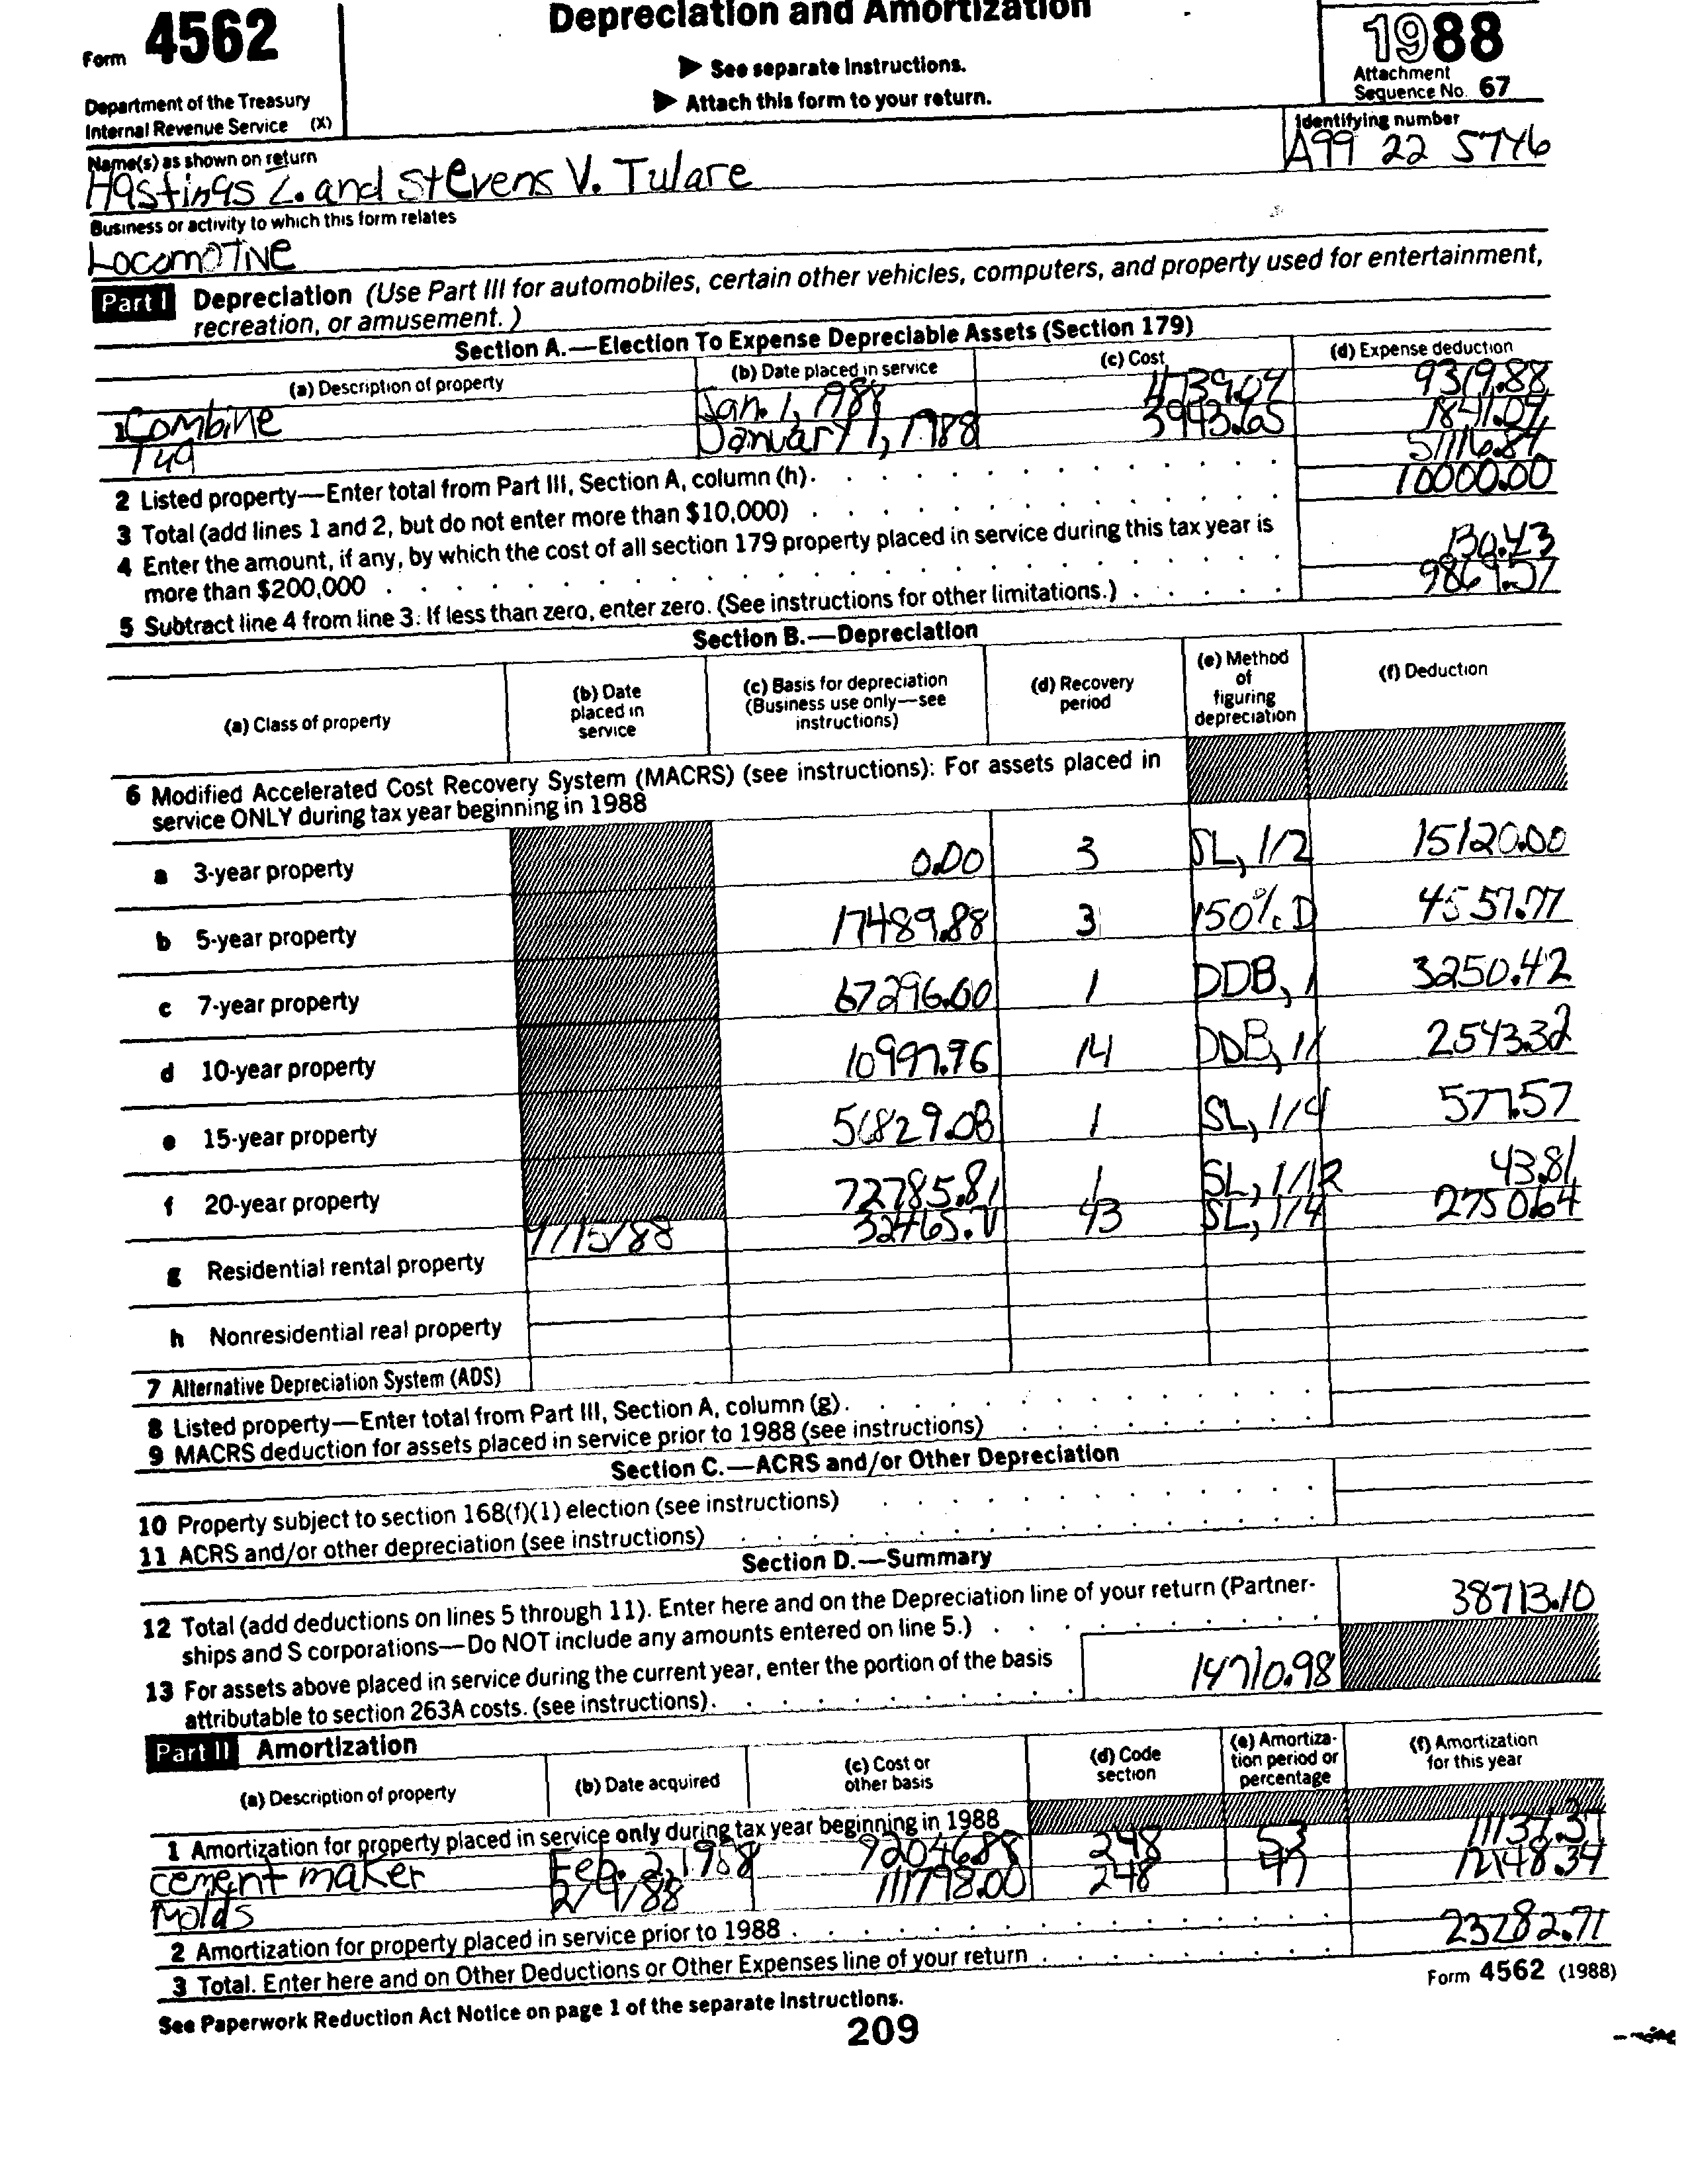 Form 4562
Depreciation and Amortization
▶ See separate Instructions.
▶ Attach this form to your return.
1988
Attachment
Sequence No. 67
Department of the Treasury
Internal Revenue Service (X)
Name(s) as shown on return
Identifying number
Hastings Z. and Stevens V. Tulare
A99 22 5746
Business or activity to which this form relates
Locomotive
Part I Depreciation (Use Part III for automobiles, certain other vehicles, computers, and property used for entertainment,
recreation, or amusement.)
Section A.—Election To Expense Depreciable Assets (Section 179)
(a) Description of property (b) Date placed in service (c) Cost (d) Expense deduction
1 Combine Jan. 1, 1988 4739.04 9319.88
Tug January 1, 1988 3943.65 1841.07
2 Listed property—Enter total from Part III, Section A, column (h). 51116.87
3 Total (add lines 1 and 2, but do not enter more than $10,000) 10000.00
4 Enter the amount, if any, by which the cost of all section 179 property placed in service during this tax year is
more than $200,000 130.43
5 Subtract line 4 from line 3. If less than zero, enter zero. (See instructions for other limitations.) 9869.57
Section B.—Depreciation
(a) Class of property (b) Date placed in service (c) Basis for depreciation (Business use only—see instructions) (d) Recovery period (e) Method of figuring depreciation (f) Deduction
6 Modified Accelerated Cost Recovery System (MACRS) (see instructions): For assets placed in
service ONLY during tax year beginning in 1988
a 3-year property 0.00 3 SL, 1/2 15120.00
b 5-year property 17489.88 3 150% D 4557.77
c 7-year property 67296.60 1 DDB, 1 3250.42
d 10-year property 10997.76 14 DDB, 1/ 2543.32
e 15-year property 56829.08 1 SL, 1/4 577.57
f 20-year property 72785.81 1 SL, 1/12 43.81
7/15/88 43 SL, 1/4 2750.64
g Residential rental property
h Nonresidential real property
7 Alternative Depreciation System (ADS)
8 Listed property—Enter total from Part III, Section A, column (g).
9 MACRS deduction for assets placed in service prior to 1988 (see instructions)
Section C.—ACRS and/or Other Depreciation
10 Property subject to section 168(f)(1) election (see instructions)
11 ACRS and/or other depreciation (see instructions)
Section D.—Summary
12 Total (add deductions on lines 5 through 11). Enter here and on the Depreciation line of your return (Partner-
ships and S corporations—Do NOT include any amounts entered on line 5.) 38713.10
13 For assets above placed in service during the current year, enter the portion of the basis
attributable to section 263A costs. (see instructions). 14710.98
Part II Amortization
(a) Description of property (b) Date acquired (c) Cost or other basis (d) Code section (e) Amortization period or percentage (f) Amortization for this year
1 Amortization for property placed in service only during tax year beginning in 1988
cement maker Feb. 2, 1988 92046.88 248 53 11134.37
Molds 2/9/88 111798.00 248 47 12148.34
2 Amortization for property placed in service prior to 1988
3 Total. Enter here and on Other Deductions or Other Expenses line of your return 23282.71
See Paperwork Reduction Act Notice on page 1 of the separate instructions.
Form 4562 (1988)
209